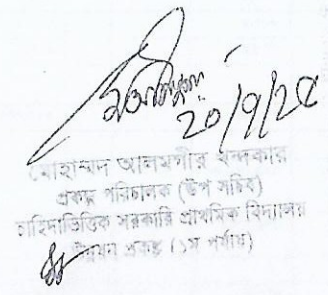 ২০/৭/২৫
মোহাম্মদ আলমগীর খন্দকার
প্রকল্প পরিচালক (উপ সচিব)
চাহিদাভিত্তিক সরকারি প্রাথমিক বিদ্যালয়
উন্নয়ন প্রকল্প (১ম পর্যায়)